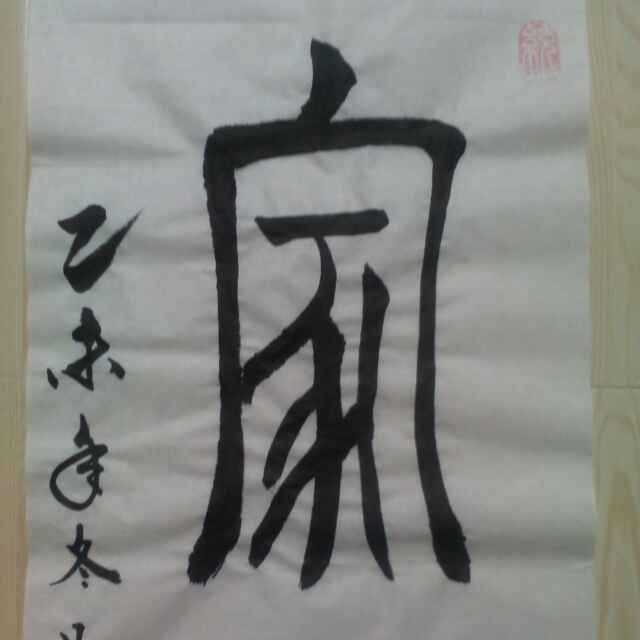 家
乙未年冬